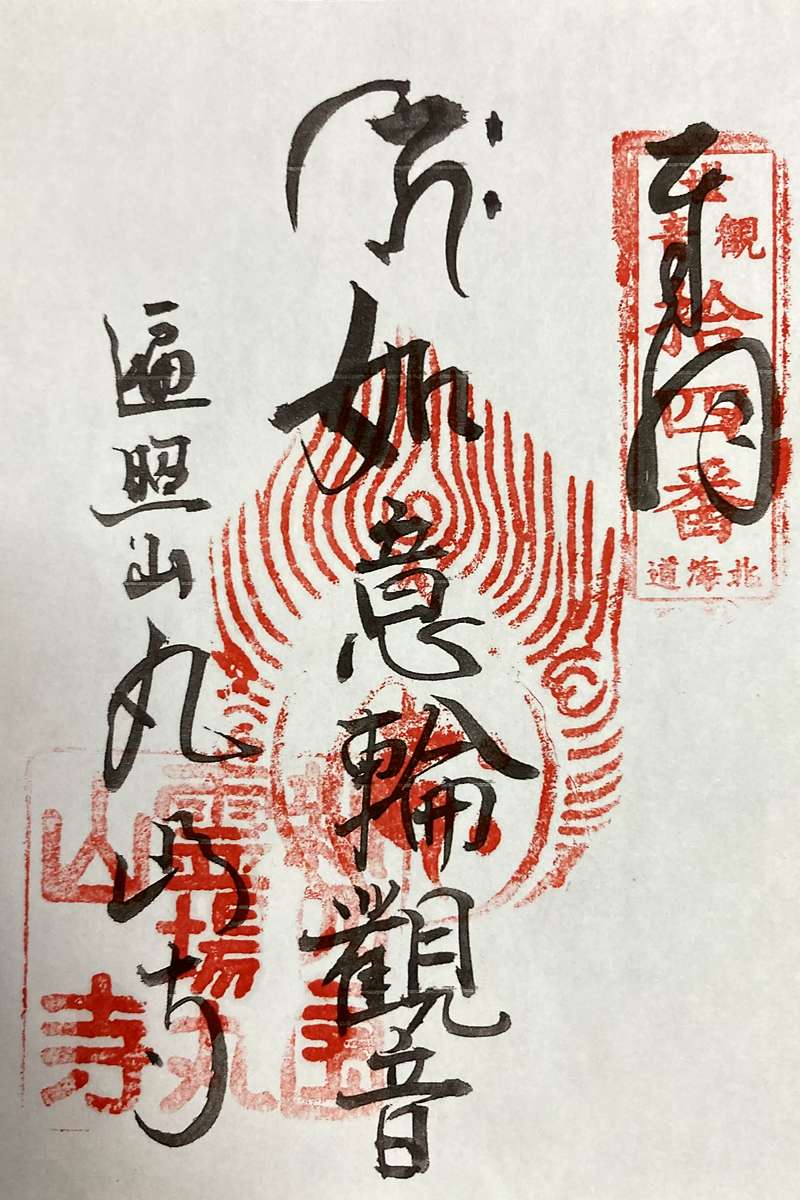 観世音
拾四番
北海道
如意輪觀音
遍照山 丸山寺
霊場丸
山寺